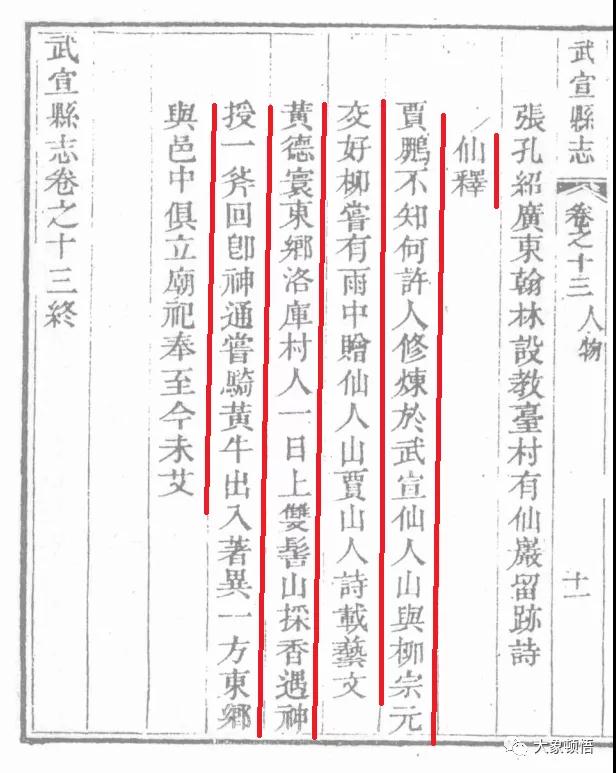 武宣縣志
卷之十三 人物
十一
張孔紹廣東翰林設教臺村有仙巖留跡詩
仙釋
賈鵬不知何許人修煉於武宣仙人山與柳宗元
交好柳嘗有雨中贈仙人山賈山人詩載藝文
黃德寰東鄉洛庫村人一日上雙髻山採香遇神
授一斧回卽神通嘗騎黃牛出入著異一方東鄉
與邑中俱立廟祀奉至今未艾
武宣縣志卷之十三終
大象顿悟